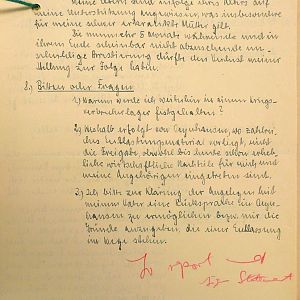 meine Eltern sind infolge ihres Alters auf
meine Unterstützung angewiesen, was insbesondere
für meine schwer erkrankte Mutter gilt.
Die nunmehr 8 Monate währende und in
ihrem Ende scheinbar nicht abzusehende un-
schuldige Arrestierung dürfte den Verlust meiner
Stellung zur Folge haben.
2.) Bitten oder Fragen
1.) Warum werde ich weiterhin in einem Kriegs-
verbrecherlager festgehalten?
2.) Weshalb erfolgt von Oeynhausen, wo zahlrei-
ches Entlastungsmaterial vorliegt, nicht
die Freigabe, obwohl bis heute schon erheb-
liche wirtschaftliche Nachteile für mich und
meine Angehörigen eingetreten sind.
3.) Ich bitte zur Klärung der Angelegenheit
meinem Vater eine Rücksprache in Oeyn-
hausen zu ermöglichen bzw. mir die
Gründe anzugeben, die einer Entlassung
im Wege stehen.